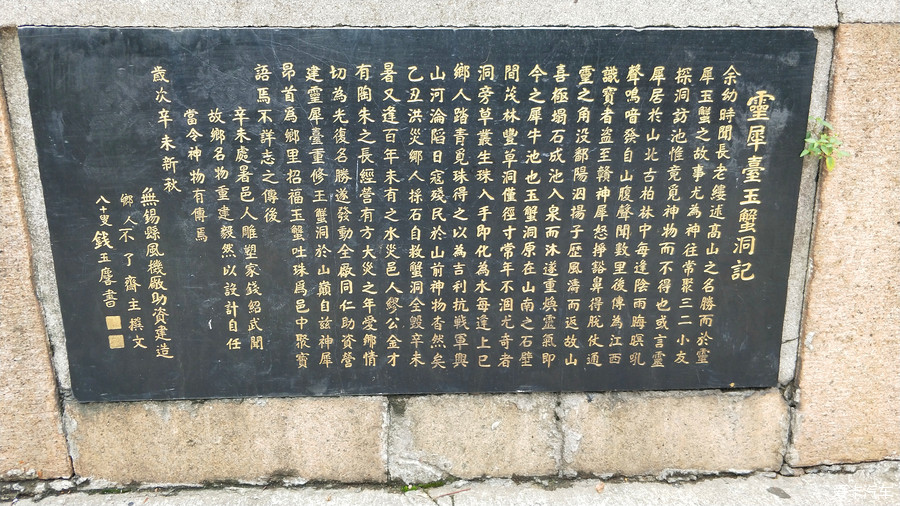 靈犀臺玉蟹洞記
余幼時聞長老縷述髙山之名勝而於靈
犀玉蟹之故事尤為神往常聚三二小友
探洞訪池惟竟覓神物而不得也或言靈
犀居於山北古柏林中每逢陰雨晦暝吼
聲鳴喑發自山腹聲聞數里後傳為江西
識寶者盜至贛神犀怒掙谿鼻得脫仗通
靈之用没鄱陽泅揚子歷風濤而返故山
喜極塌石成池入泉而沐遂重煥靈氣即
今之犀牛池也玉蟹洞原在山南之石壁
間茂林豐草洞僅徑寸常年不涸尤奇者
洞旁草叢生珠入手即化為水每逢上巳
鄉人踏青覓珠得之以為吉利抗戰軍興
山河淪陷日寇殘民於山前神物杳然矣
乙丑洪災鄉人採石自救蟹洞全毀辛未
暑又逢百年未有之水災邑人繆公金才
有陶朱之長經營有方大災之年愛鄉情
切為光復名勝遂發動全廠同仁助資營
建靈犀臺重修玉蟹洞於山巔自兹神犀
昂首為鄉里招福玉蟹吐珠爲邑中聚寳
語焉不詳志之傳後
辛未處暑邑人雕塑家錢紹武聞
故鄉名物重建毅然以設計自任
當令神物有傳焉
歲次辛未新秋
無錫縣風機廠助資建造
鄉人不了齋主撰文
八十叟錢玉麐書